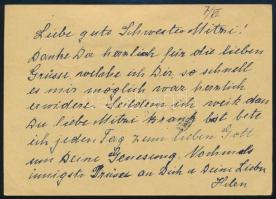 7/VI
Liebe gute Schwester Mitzi!
Danke Dir herzlich für die lieben
Grüsse, welche ich Dir, so schnell
es mir möglich war herzlich
erwidere. Seitdem ich weiß dan
Du liebe Mitzi krank bist bete
ich jeden Tag zum lieben Gott
um Deine Genesung. Nochmals
innigste Grüsse an Dich u Deine Lieben
Helen